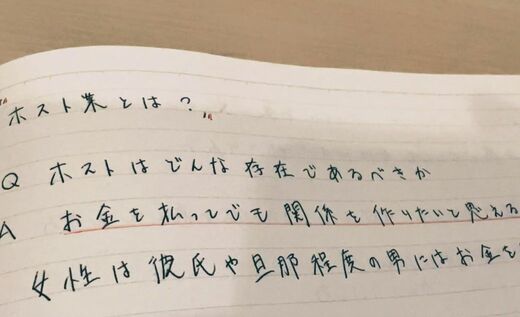 "ホスト業とは?"
Q ホストはどんな存在であるべきか
A お金を払ってでも関係を作りたいと思える
女性は彼氏や旦那程度の男にはお金を